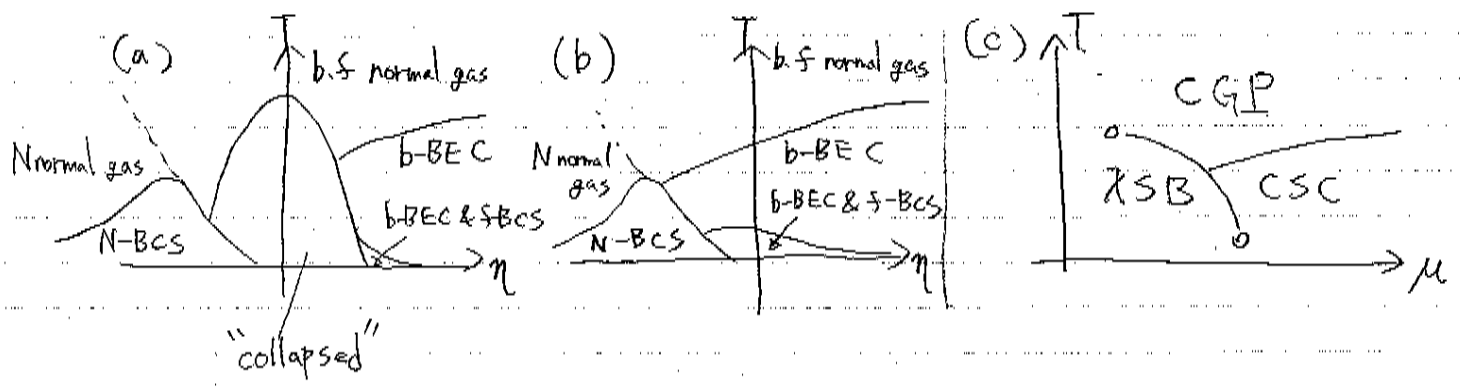 (a)
T
b.f normal gas
N normal gas
b-BEC
b-BEC & f-BCS
N-BCS
η
"collapsed"
(b)
T
b.f normal gas
N normal
gas
b-BEC
b-BEC & f-BCS
N-BCS
η
(c)
T
CGP
χSB
CSC
μ